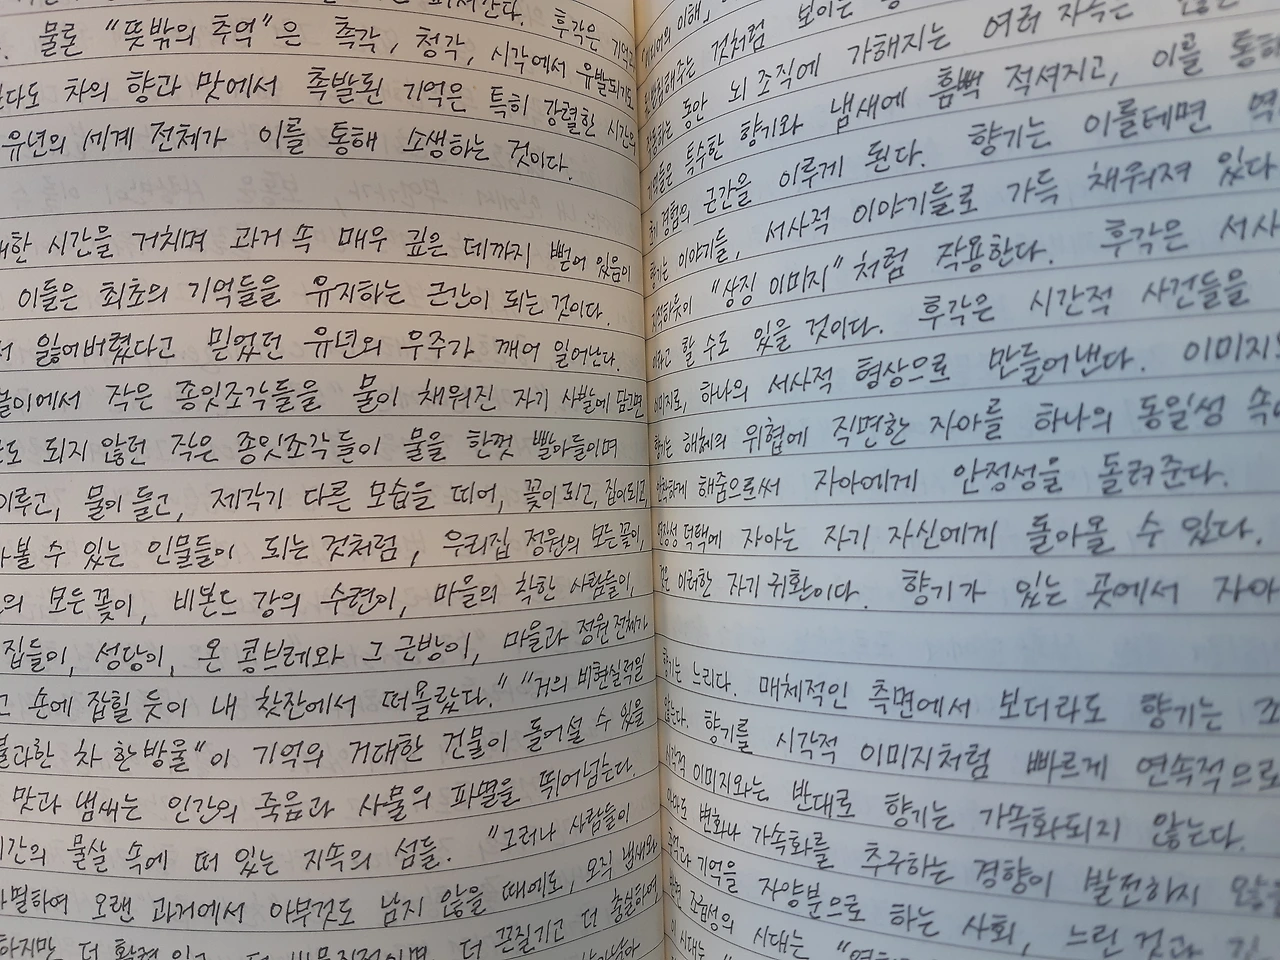 물론 "뜻밖의 추억"은 촉각, 청각, 시각에서 유발되기도
차의 향과 맛에서 촉발된 기억은 특히 강렬한 시간의
유년의 세계 전체가 이를 통해 소생하는 것이다.
시간을 거치며 과거 속 매우 깊은 데까지 뻗어 있음이
이들은 최초의 기억들을 유지하는 근간이 되는 것이다.
잃어버렸다고 믿었던 유년의 우주가 깨어 일어난다.
작은 종잇조각들을 물이 채워진 자기 사발에 담그면
되지 않던 작은 종잇조각들이 물을 한껏 빨아들이며
이루고, 물이 들고, 제각기 다른 모습을 띠어, 꽃이 되고, 집이 되고,
수 있는 인물들이 되는 것처럼, 우리집 정원의 모든 꽃이,
모든 꽃이, 비본느 강의 수련이, 마을의 착한 사람들이,
집들이, 성당이, 온 콩브레와 그 근방이, 마을과 정원 전체가
손에 잡힐 듯이 내 찻잔에서 떠올랐다." "거의 비현실적일
차 한 방울"이 기억의 거대한 건물이 들어설 수 있을
맛과 냄새는 인간의 죽음과 사물의 파멸을 뛰어넘는다.
물살 속에 떠 있는 지속의 섬들. "그러나 사람들이
오랜 과거에서 아무것도 남지 않을 때에도, 오직 냄새와
더 끈질기고 더 충실하여
것처럼 보이는
동안 뇌 조직에 가해지는 여러 자극은
특수한 향기와 냄새에 흠뻑 적셔지고, 이를 통해
경험의 근간을 이루게 된다. 향기는 이를테면
향기는 이야기들, 서사적 이야기들로 가득 채워져 있다
"상징 이미지"처럼 작용한다. 후각은 서사
할 수도 있을 것이다. 후각은 시간적 사건들을
하나의 서사적 형상으로 만들어낸다.
향기는 해체의 위협에 직면한 자아를 하나의 동일성
해줌으로써 자아에게 안정성을 돌려준다.
덕택에 자아는 자기 자신에게 돌아올 수 있다.
이러한 자기 귀환이다. 향기가 있는 곳에서
향기는 느리다. 매체적인 측면에서 보더라도 향기는
않는다. 향기를 시각적 이미지처럼 빠르게 연속적으로
시각적 이미지와는 반대로 향기는 가속화되지 않는다.
변화나 가속화를 추구하는 경향이 발전하지
기억을 자양분으로 하는 사회, 느린 것과
조급성의 시대는